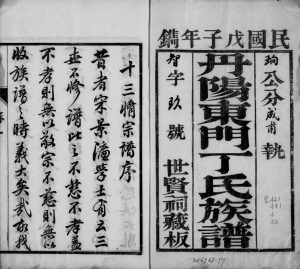 民國戊子年鐫
珣公分咸甫執
丹陽東門丁氏族譜
智字玖號
世賢祠藏板
十三脩宗譜序
昔者宋景濂學士有云三
世不修譜比之不慈不孝蓋
不孝則無以敬宗不慈則無以
收族譜之時義大矣哉故我